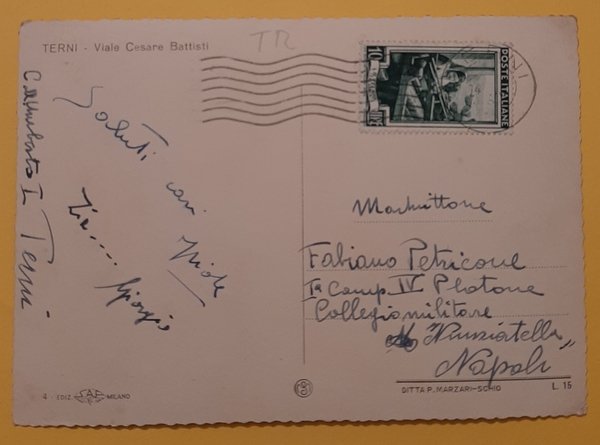 TERNI - Viale Cesare Battisti
TR
10
POSTE ITALIANE
LIRE
Saluti cari
Giorgio
Terni
Fabiano Petricone
Iª Comp. IV Plotone
Collegio militare
"Nunziatella"
Napoli
4 - EDIZ. SAF MILANO
DITTA P. MARZARI-SCHIO
L. 15